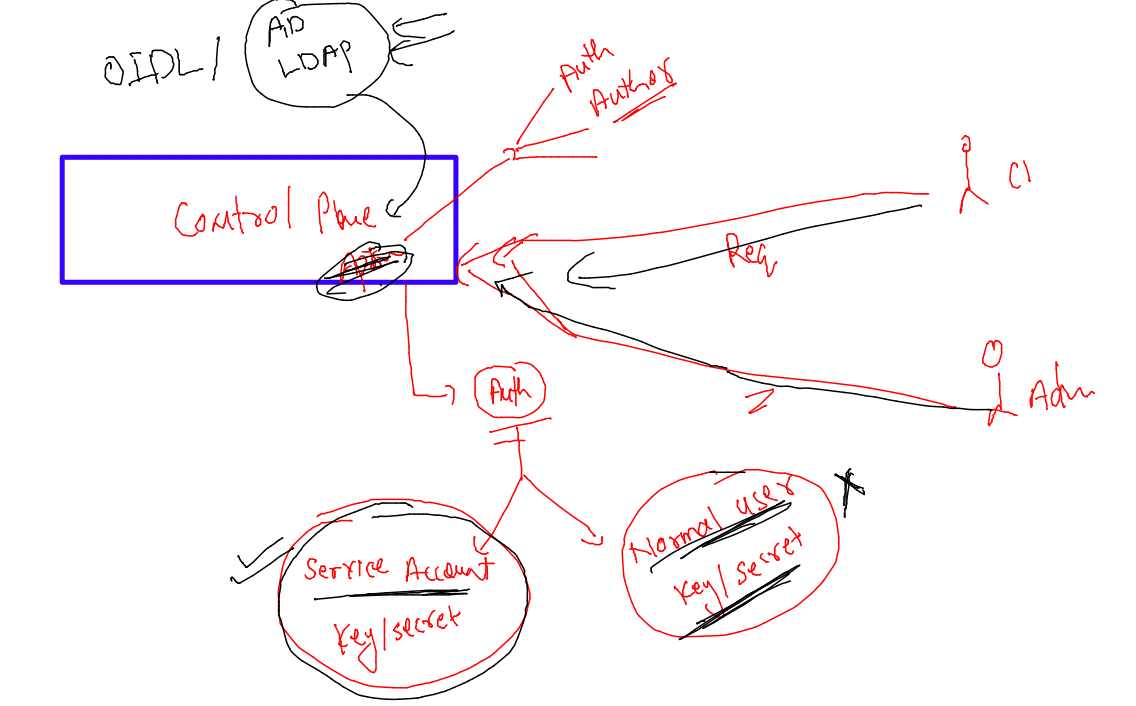 AD
OIDL/
LDAP
Auth
Author
Control Plane
API
Req
Auth
Adm
Service Account
Key/secret
Normal user
Key/secret